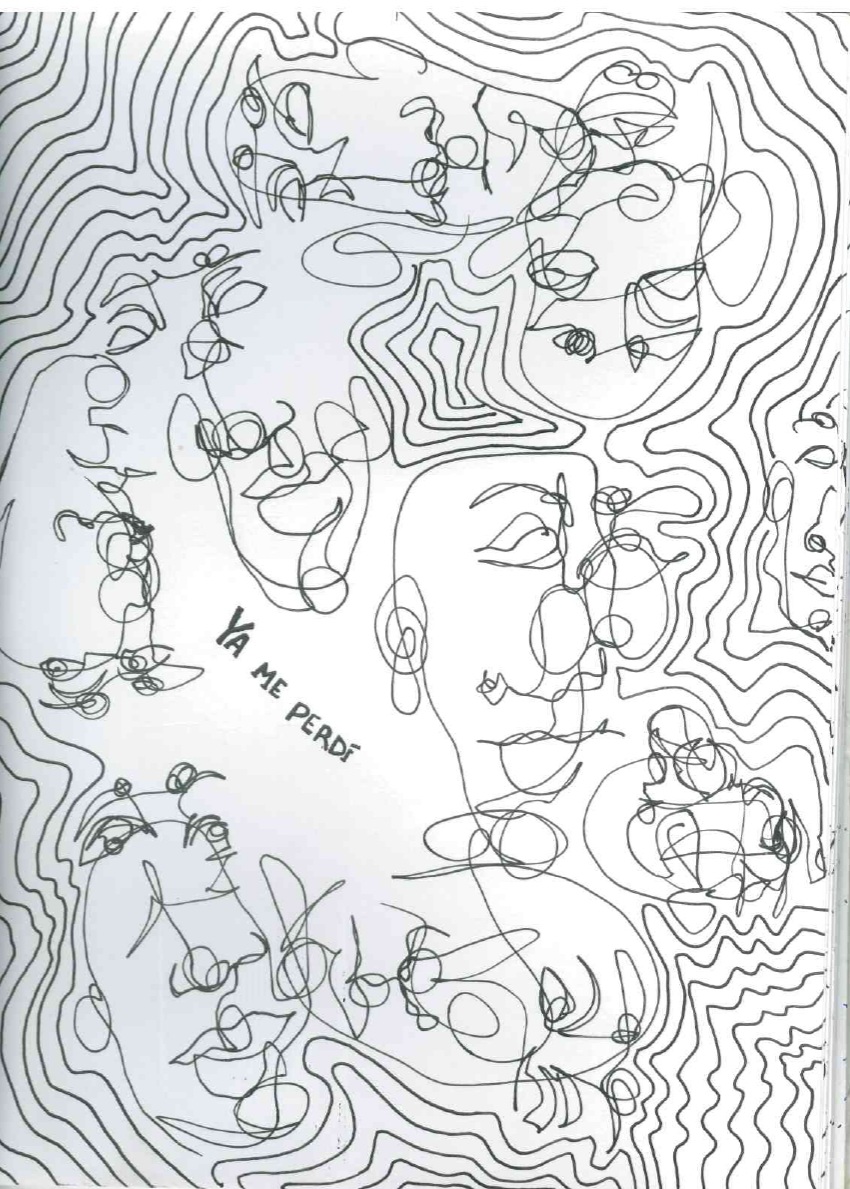 YA ME PERDÍ